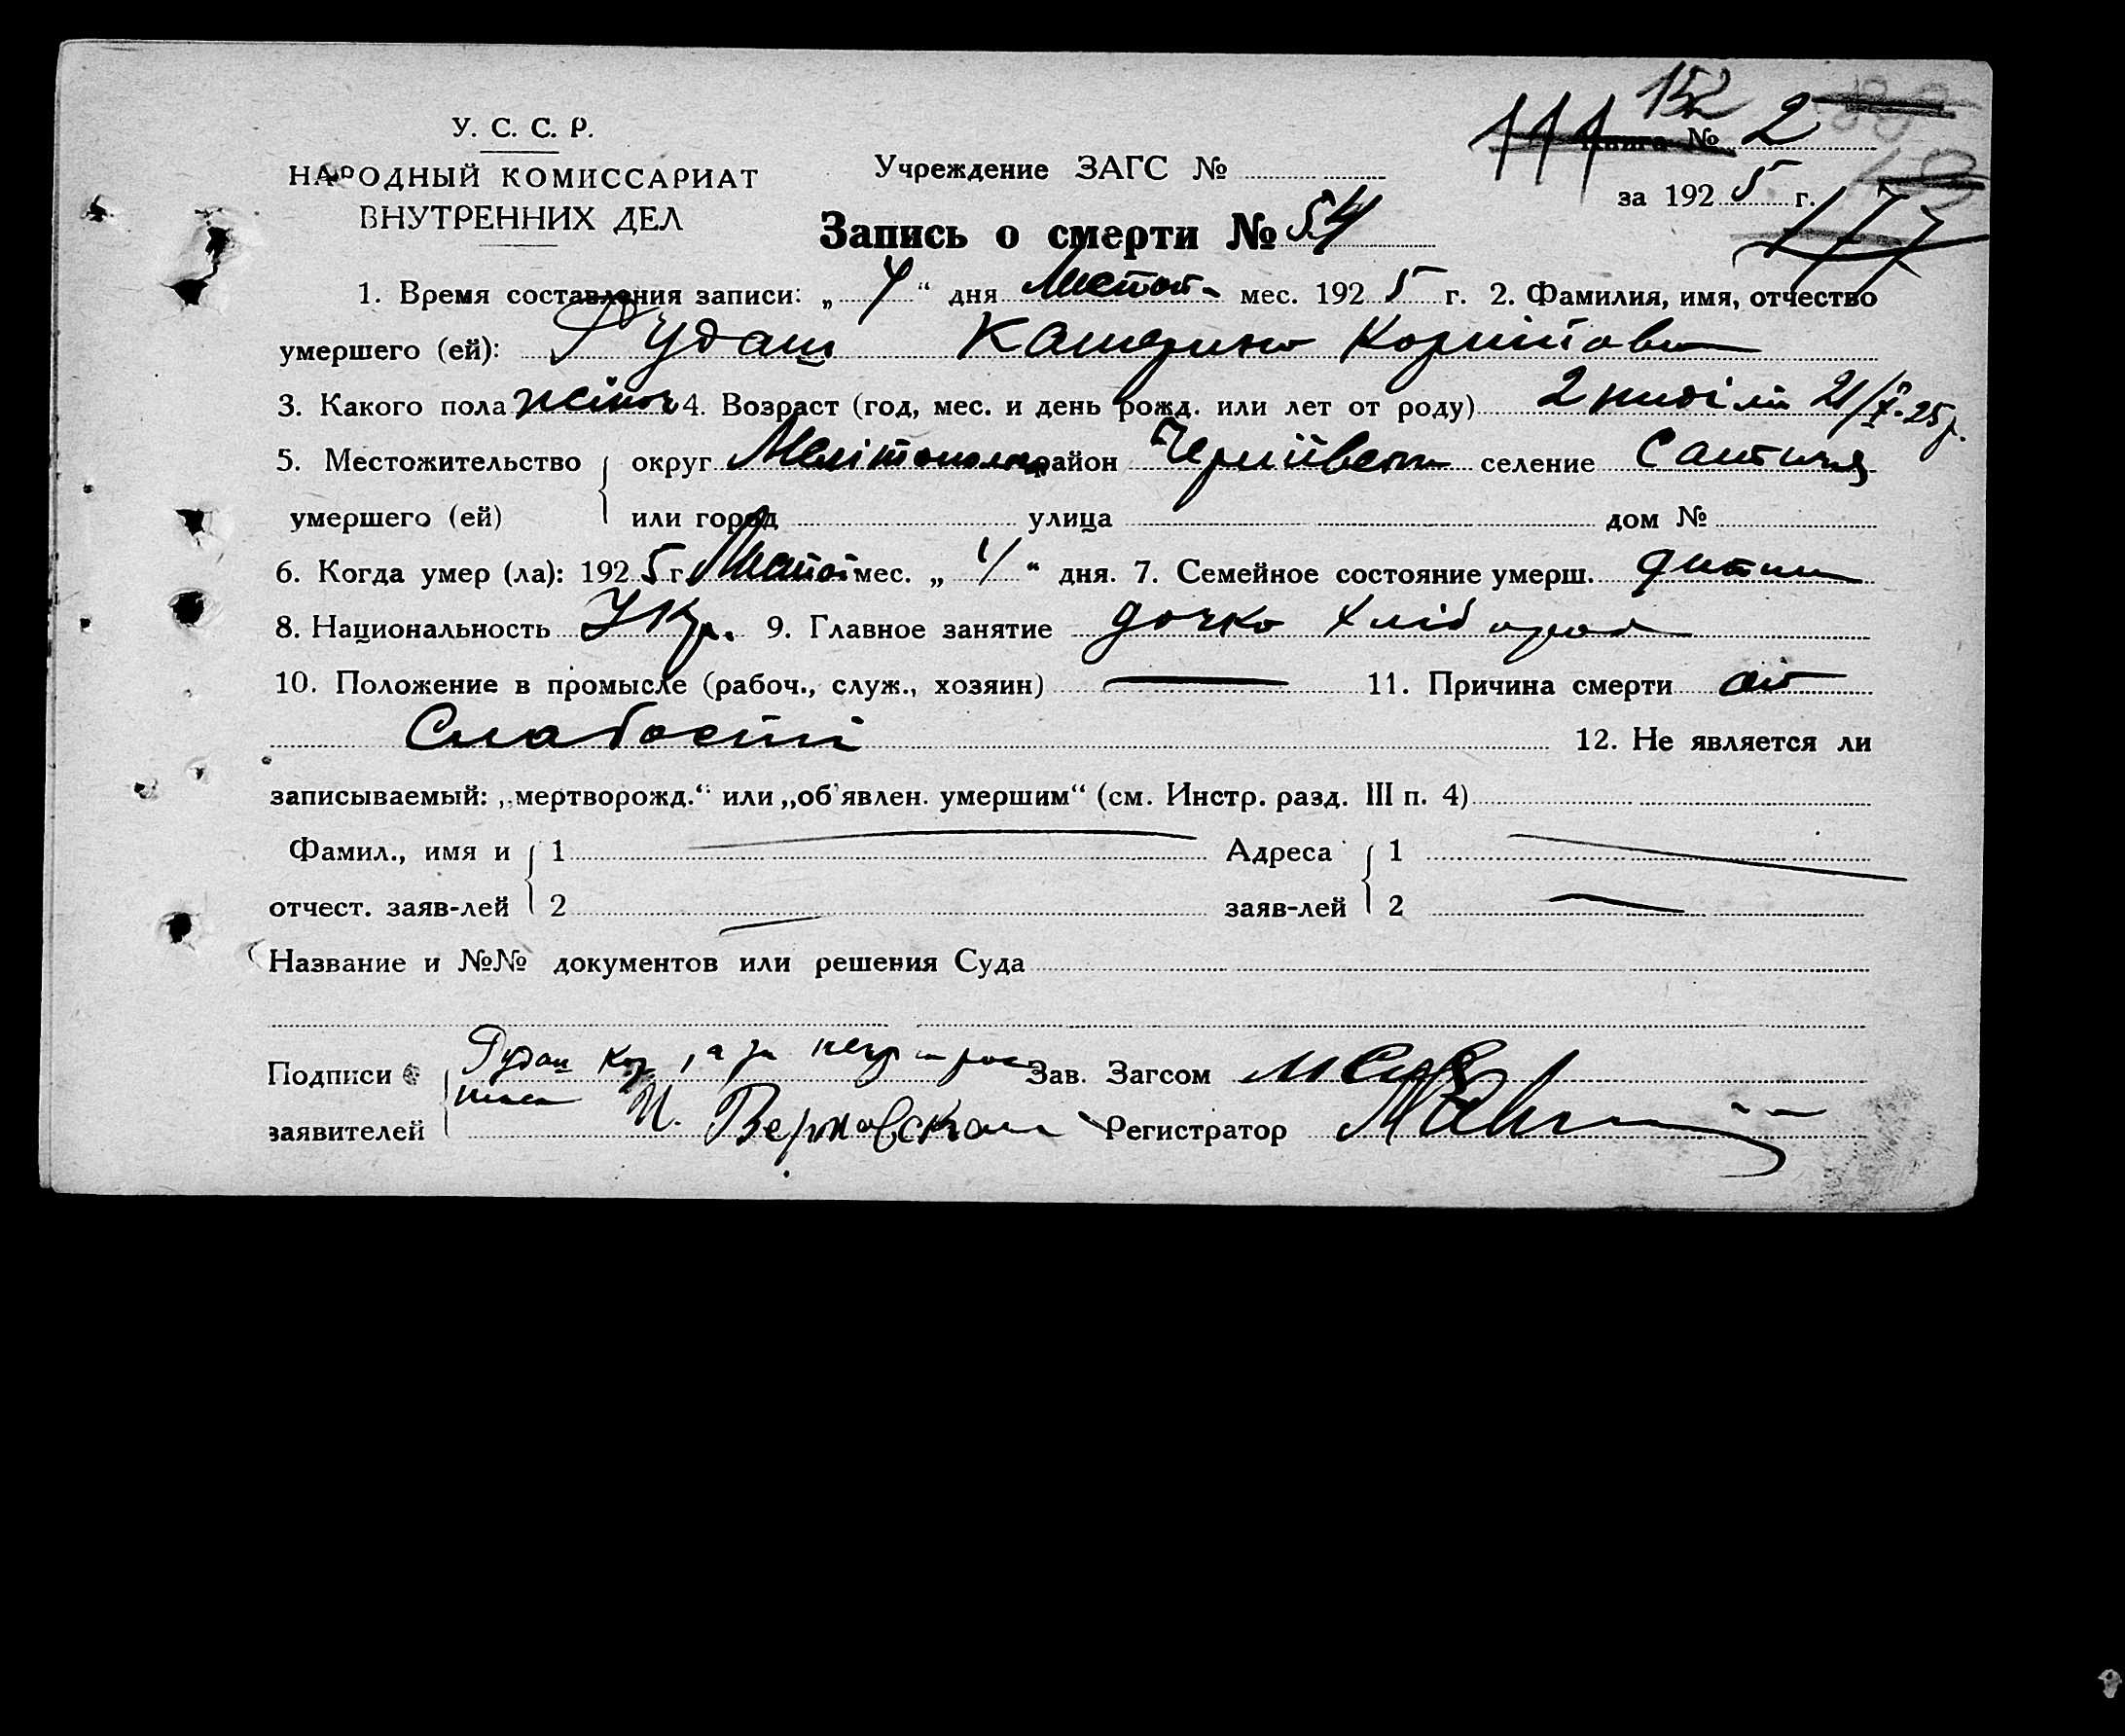 152
У. С. С. Р.
111 Книга № 2
НАРОДНЫЙ КОМИССАРИАТ
ВНУТРЕННИХ ДЕЛ
Учреждение ЗАГС №
за 1925 г.
177
Запись о смерти № 54
1. Время составления записи: „ 4 “ дня мес. 1925 г. 2. Фамилия, имя, отчество
умершего (ей): Рудаш Катерина
3. Какого пола жіноч 4. Возраст (год, мес. и день рожд. или лет от роду) 2 неділі 21/X-25 р.
5. Местожительство округ Мелітополь район селение
умершего (ей) или город улица дом №
6. Когда умер (ла): 1925 г. мес. „ 1 “ дня. 7. Семейное состояние умерш. дитина
8. Национальность Укр. 9. Главное занятие дочка хлібороб
10. Положение в промысле (рабоч., служ., хозяин) — 11. Причина смерти від
Слабости 12. Не является ли
записываемый: „мертворожд.“ или „об'явлен. умершим“ (см. Инстр. разд. III п. 4)
Фамил., имя и 1 Адреса 1
отчест. заяв-лей 2 заяв-лей 2
Название и №№ документов или решения Суда
Подписи Кор Зав. Загсом
заявителей Регистратор